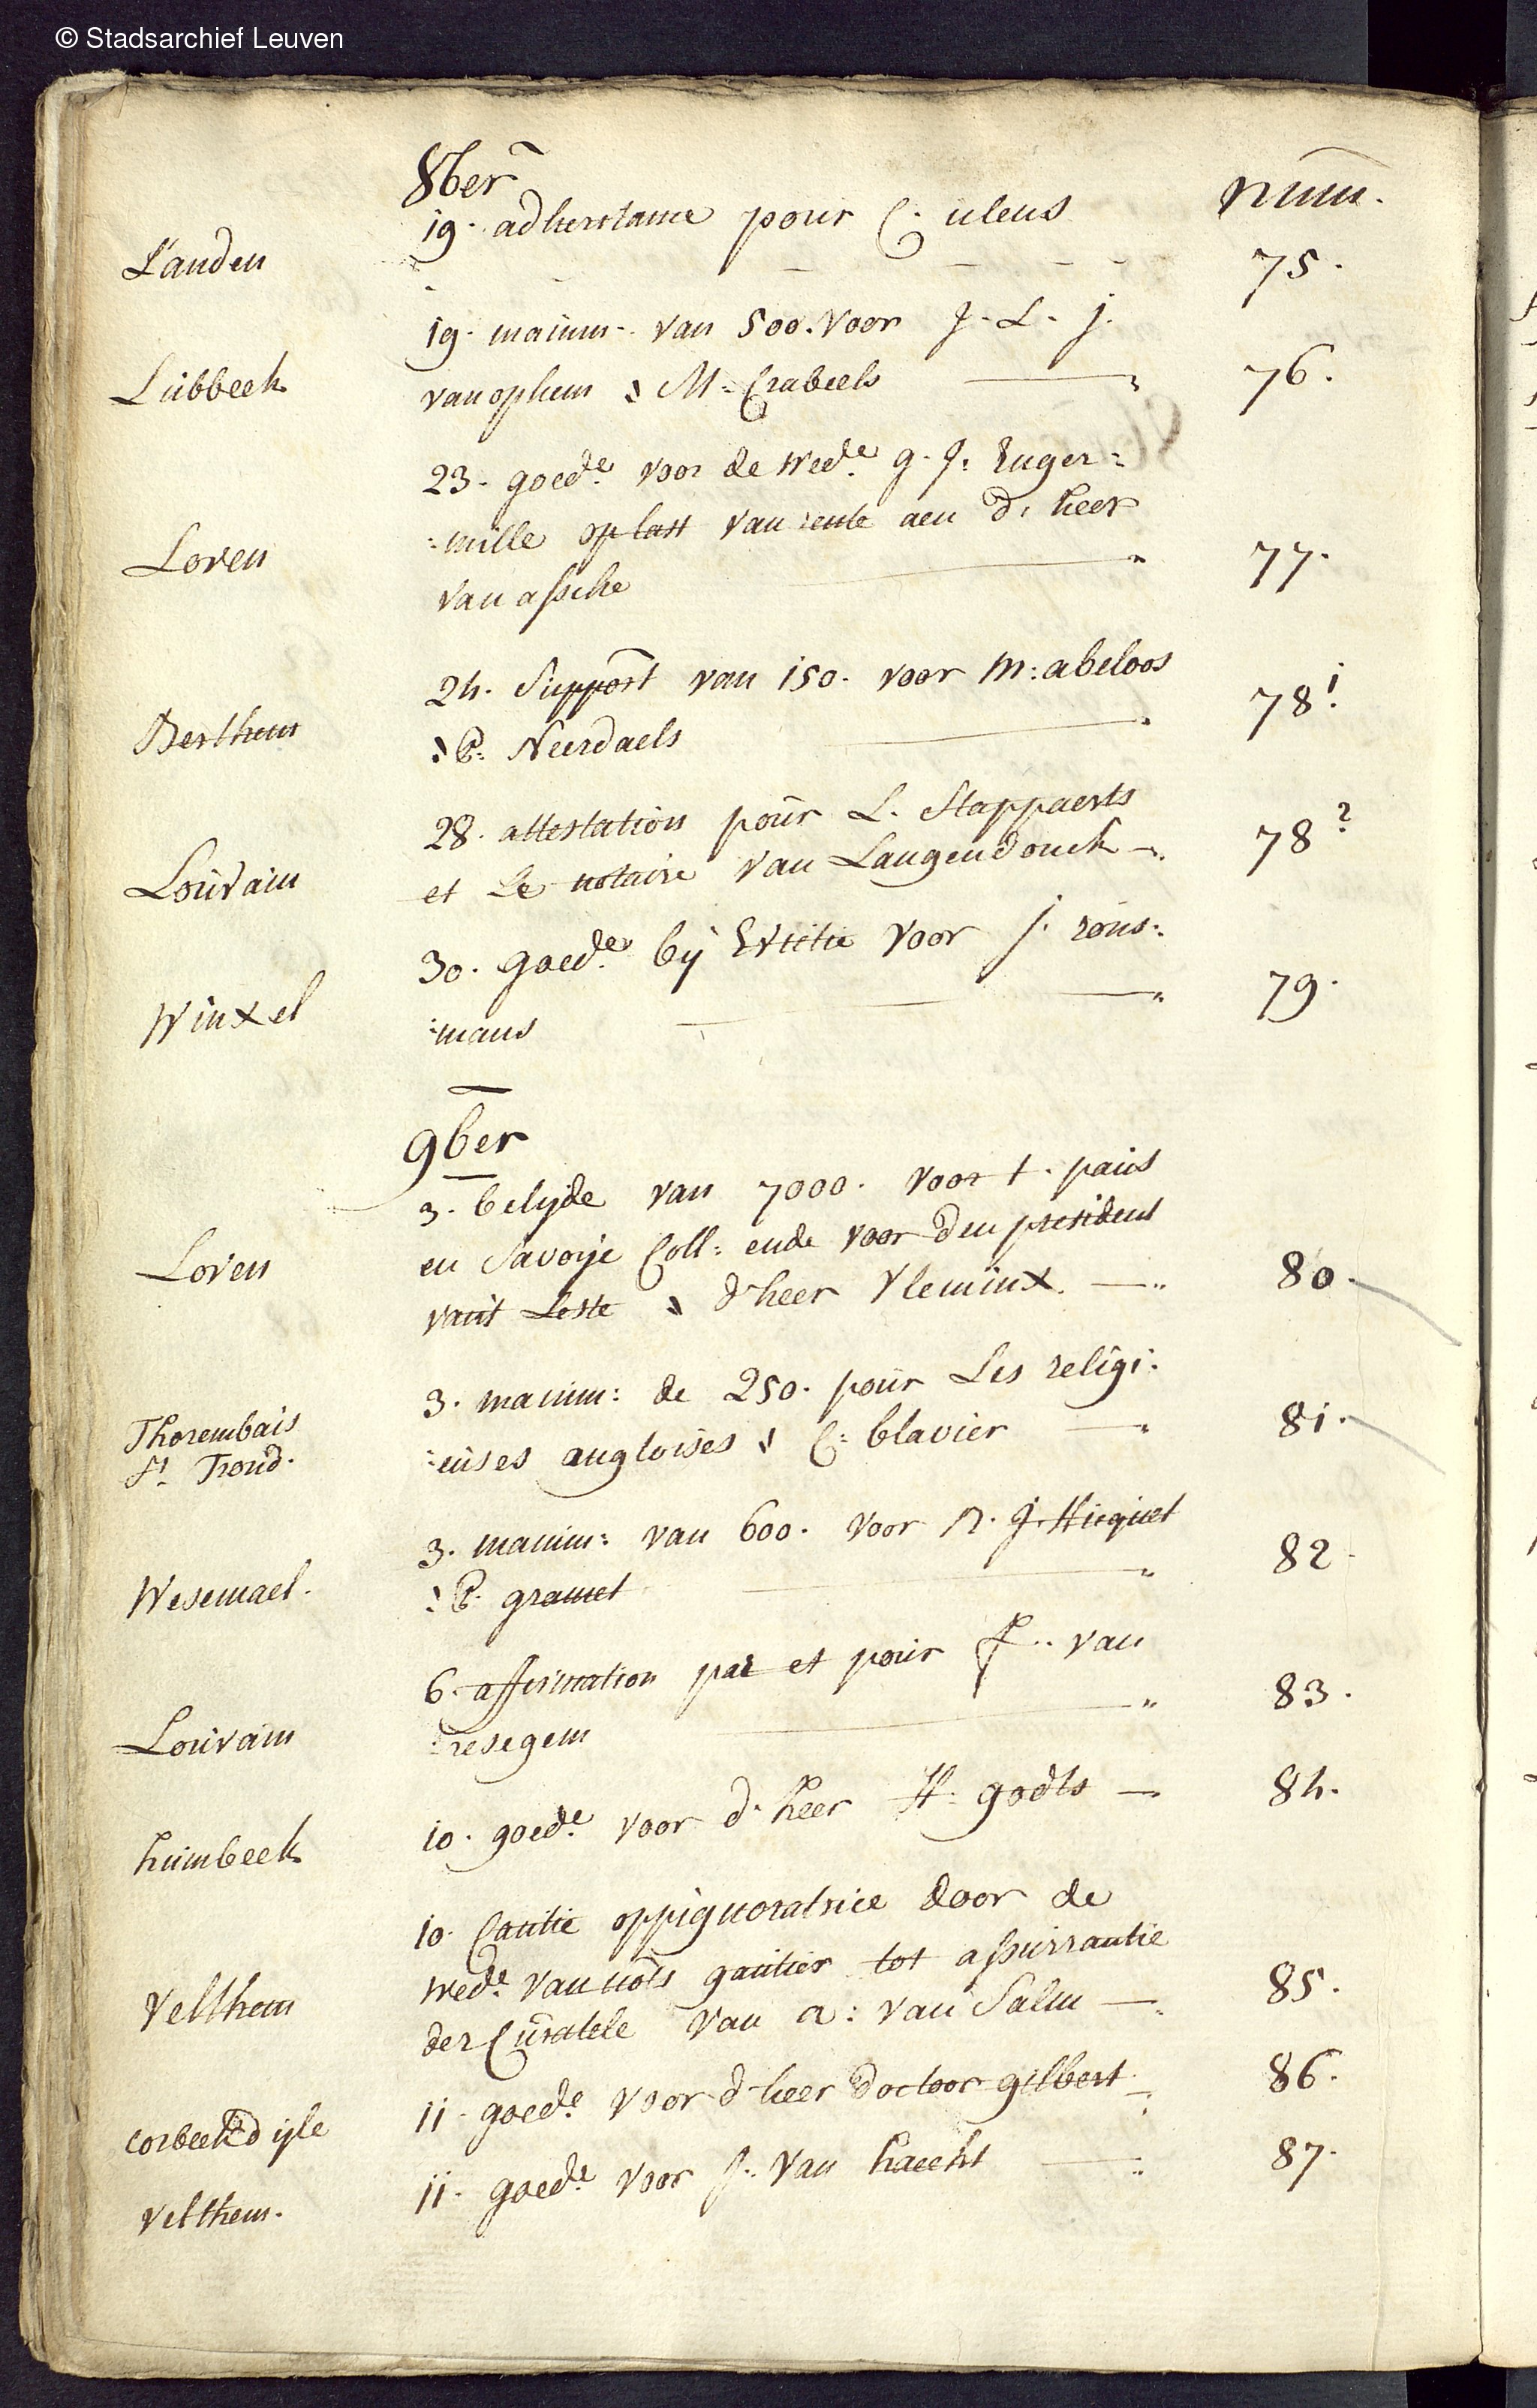 © Stadsarchief Leuven
8ber
num.
19. adheritame pour C. uleus
Landen
75.
19. manum. van 500. voor J. L. j.
Lubbeek
van ophem & M: Crabeels
76.
23. goede voor de wede g. J.
:mille op last van rente aen d' heer
Loven
van assche
77.
24. Support van 150. voor M: abeloos
Berthem
& P: Neerdaels
78 1
28. attestation pour L. Stappaerts
Louvain
et Le notaire van Langendonck
78 2
30. goede bij Evictie voor J. rons:
Winxel
:mans
79.
9ber
3. belyde van 7000. voor t. paus
Loven
en Savoije Coll: ende voor den president
van't Leste & d'heer Vleminx.
80.
3. manum: de 250. pour Les religi:
Thorembais
:euses angloises & C: blavier
81.
St. Trond.
3. manum: van 600. voor N. J. Hicquet
Wesemael.
& P. gramet
82
6. affirmation par et pour F.. van
Louvain
:resegem
83.
humbeek
10. goede voor d. heer H: godts
84.
10. Cautie oppignoratrice door de
Velthem
wede van nots gautier tot assurrantie
der Curatele van a: van Salm
85.
corbeek d ijle
11. goede voor d heer doctoor gilbert
86.
Velthem.
11. goede voor J. van haecht
87.